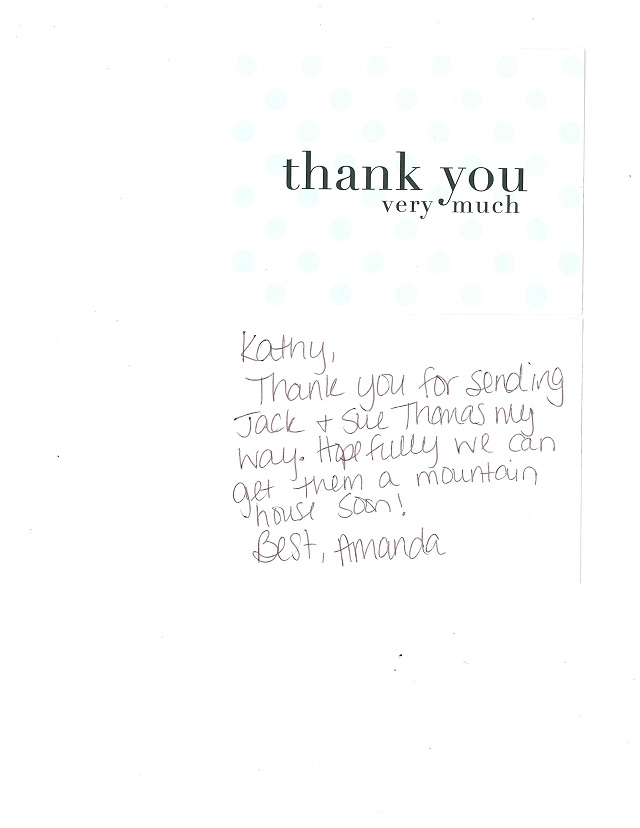 thank you
very much
Kathy,
Thank you for sending
Jack + Sue Thomas my
way. Hopefully we can
get them a mountain
house soon!
Best, Amanda